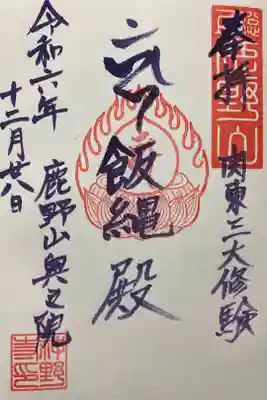 奉拝
関東三大修験
飯縄殿
鹿野山奥之院
令和六年
十二月廿八日
神野寺印